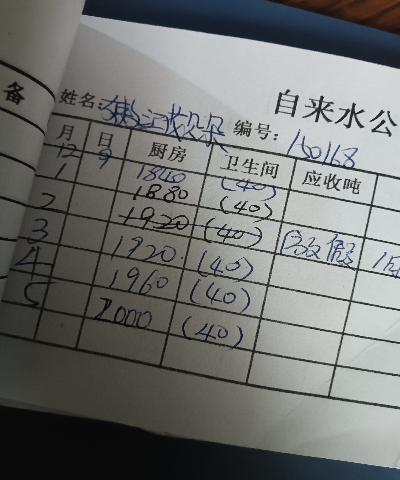 备
自来水公
姓名: 编号: 150168
月 日 厨房 卫生间 应收吨
12 9 1840 (40)
1 1880 (40)
2 1920 (40)
3 1920 (40) 放假
4 1960 (40)
5 2000 (40)